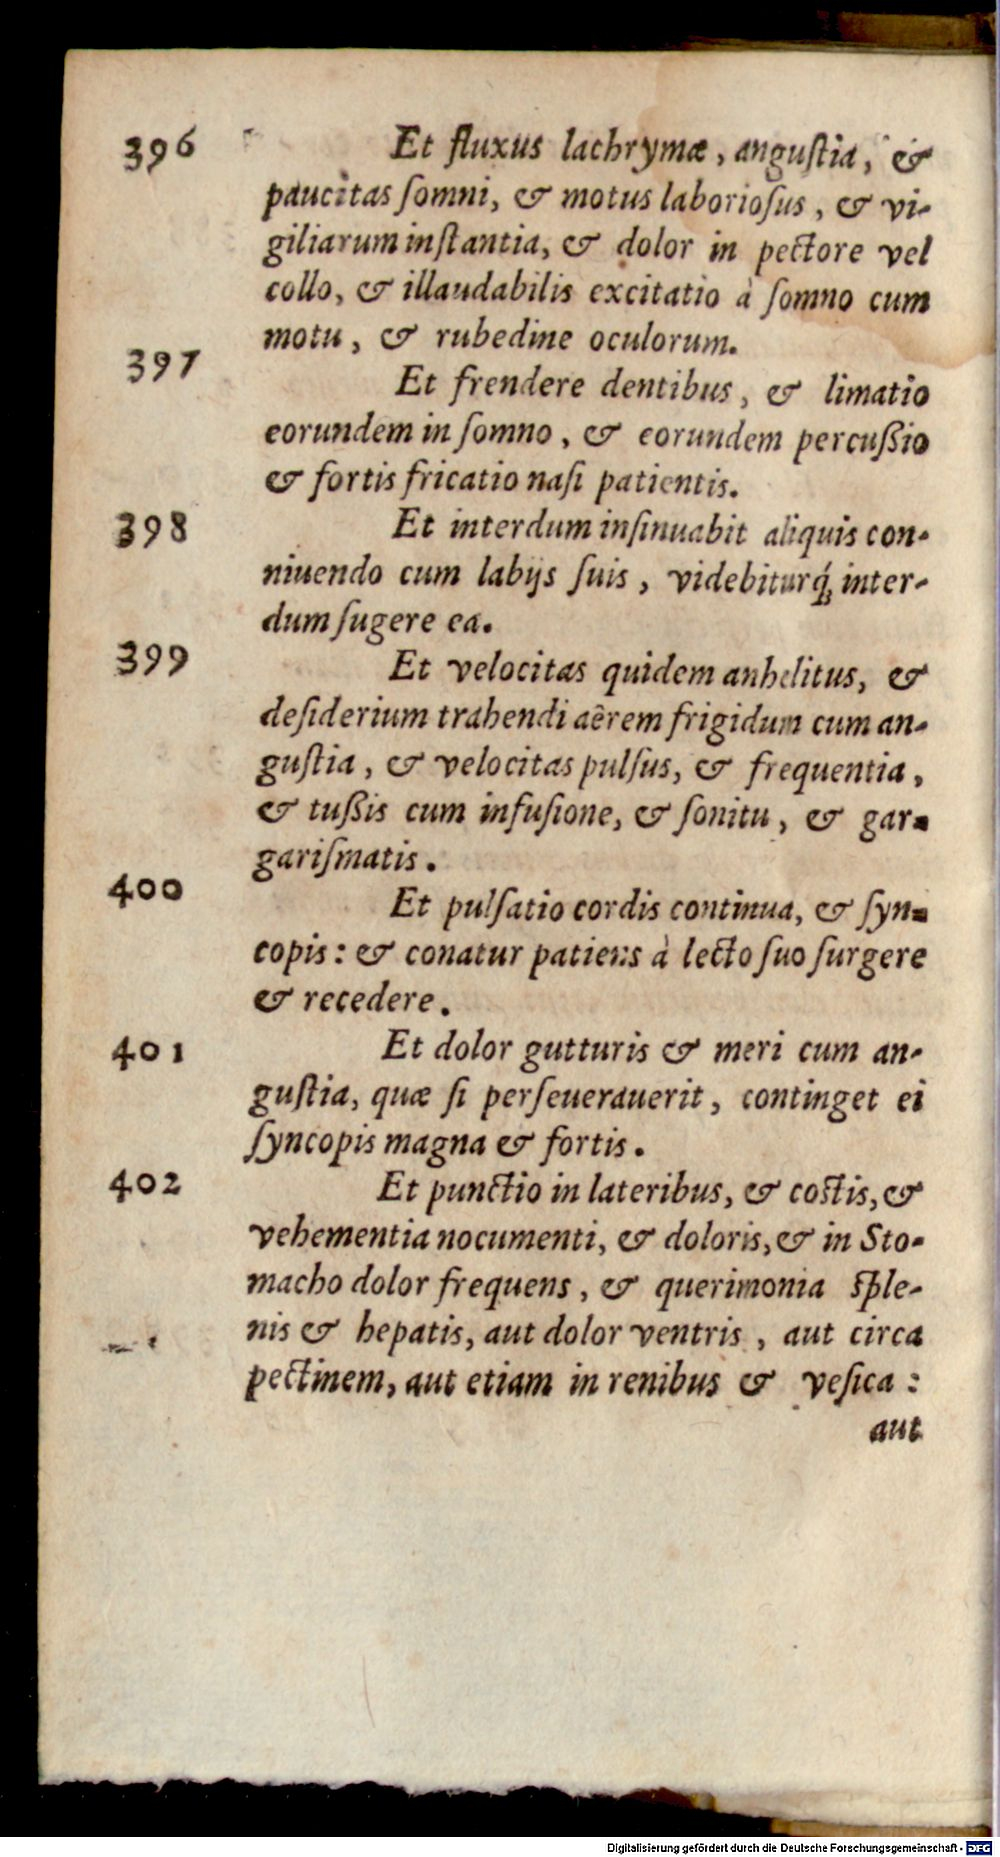 396 Et fluxus lachrymæ, anguſtia, &
paucitas ſomni, & motus laborioſus, & vi-
giliarum inſtantia, & dolor in pectore vel
collo, & illaudabilis excitatio à ſomno cum
motu, & rubedine oculorum.
397 Et frendere dentibus, & limatio
eorundem in ſomno, & eorundem percuſsio
& fortis fricatio naſi patientis.
398 Et interdum inſinuabit aliquis con-
niuendo cum labijs ſuis, videbiturq́; inter-
dum ſugere ea.
399 Et velocitas quidem anhelitus, &
deſiderium trahendi aërem frigidum cum an-
guſtia, & velocitas pulſus, & frequentia,
& tuſsis cum infuſione, & ſonitu, & gar-
gariſmatis.
400 Et pulſatio cordis continua, & ſyn-
copis: & conatur patiens à lecto ſuo ſurgere
& recedere.
401 Et dolor gutturis & meri cum an-
guſtia, quæ ſi perſeuerauerit, continget ei
ſyncopis magna & fortis.
402 Et punctio in lateribus, & coſtis, &
vehementia nocumenti, & doloris, & in Sto-
macho dolor frequens, & querimonia ſple-
nis & hepatis, aut dolor ventris, aut circa
pectinem, aut etiam in renibus & veſica:
aut
Digitalisierung gefördert durch die Deutsche Forschungsgemeinschaft - DFG